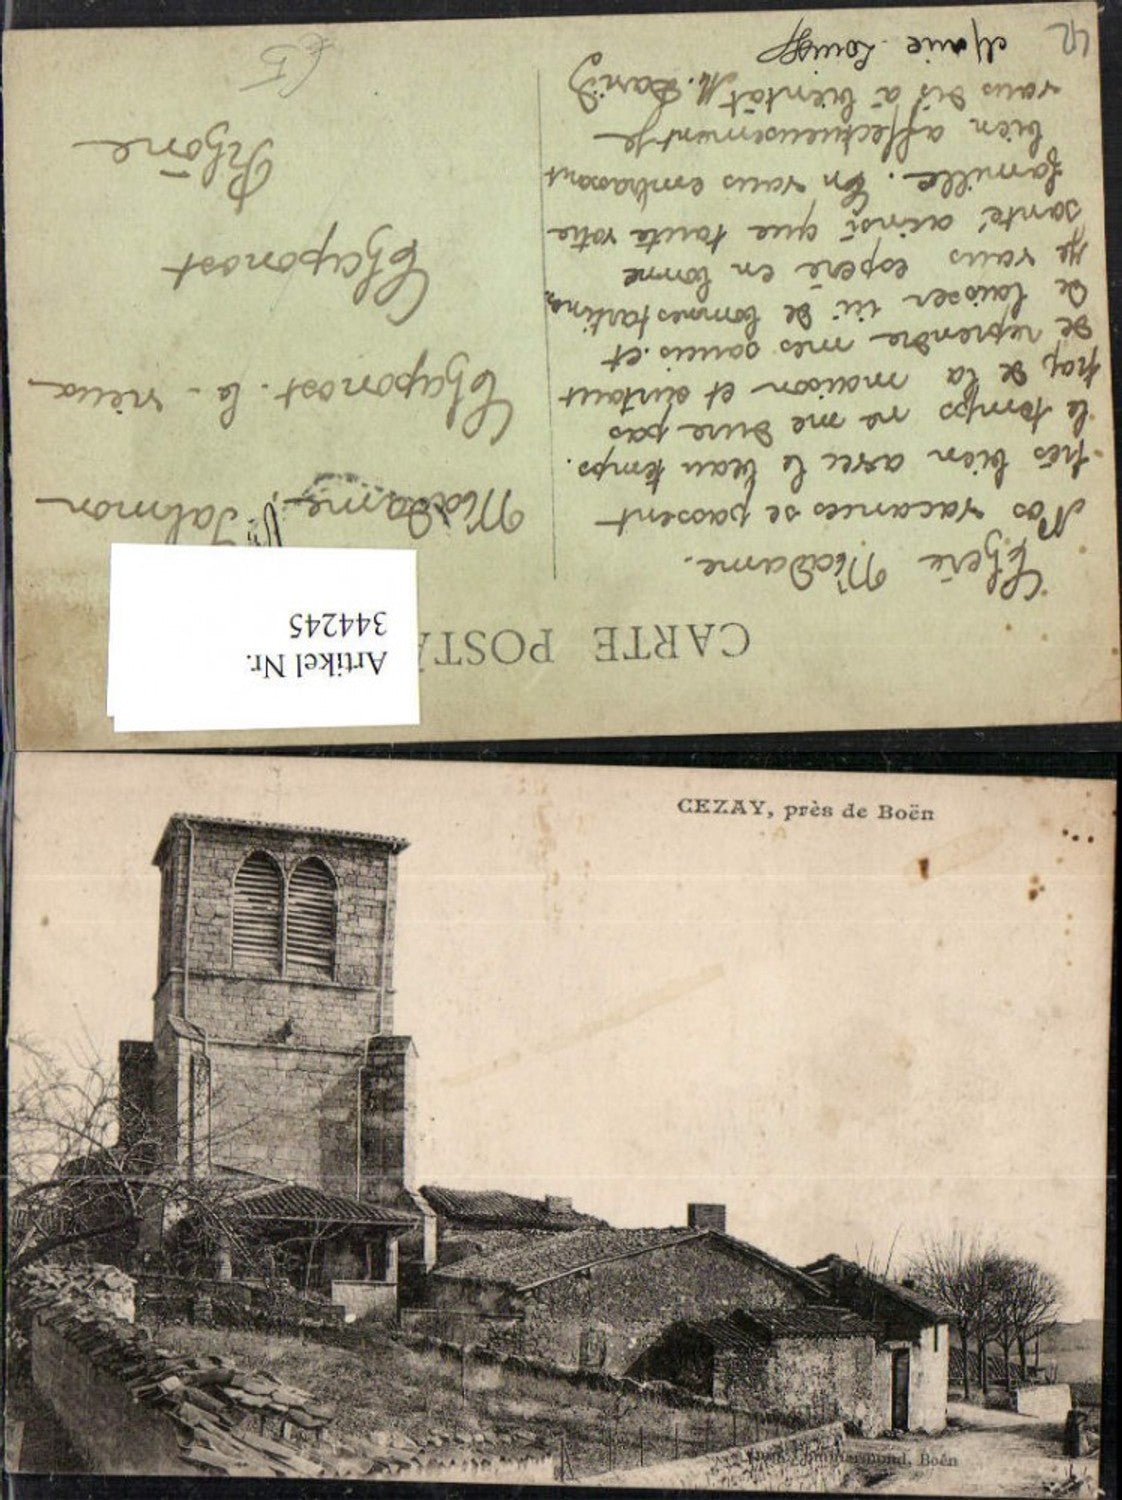 CARTE POSTA
Chère Madame.
Nos vacances se passent
très bien avec le beau temps.
le temps ne me dure pas
trop de la maison et surtout
de reprendre mes soucis et
de laisser ici de bonnes tartines.
Je vous espère en bonne
santé ainsi que toute votre
famille. En vous embrassant
bien affectueusement je
vous dis à bientôt M. David
Marie Louise
Madame Salmon
Chaponost. le - vieux
Chaponost
Rhône
42
£5
Artikel Nr.
344245
CEZAY, près de Boën
Boën